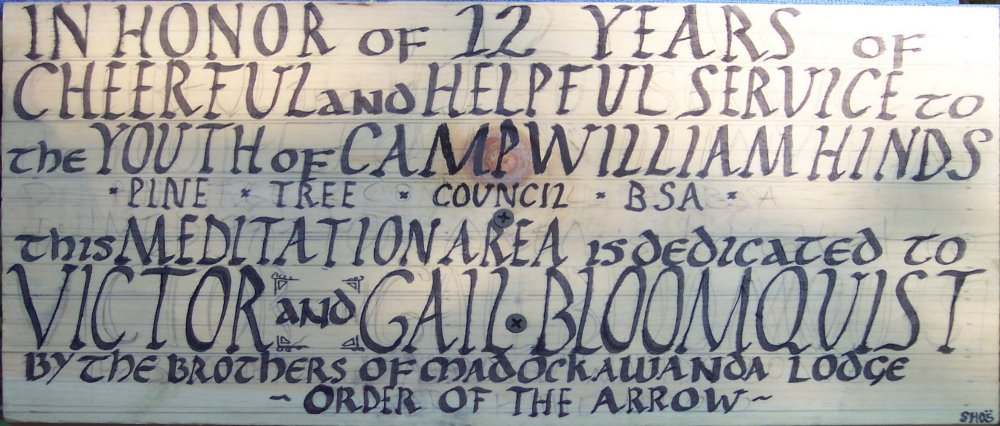 IN HONOR OF 12 YEARS OF
CHEERFUL AND HELPFUL SERVICE TO
the YOUTH OF CAMP WILLIAM HINDS
* PINE * TREE * COUNCIL * BSA *
this MEDITATION AREA is dedicated to
VICTOR AND GAIL BLOOMQUIST
BY THE BROTHERS OF MADOCKAWANDA LODGE
~ ORDER OF THE ARROW ~